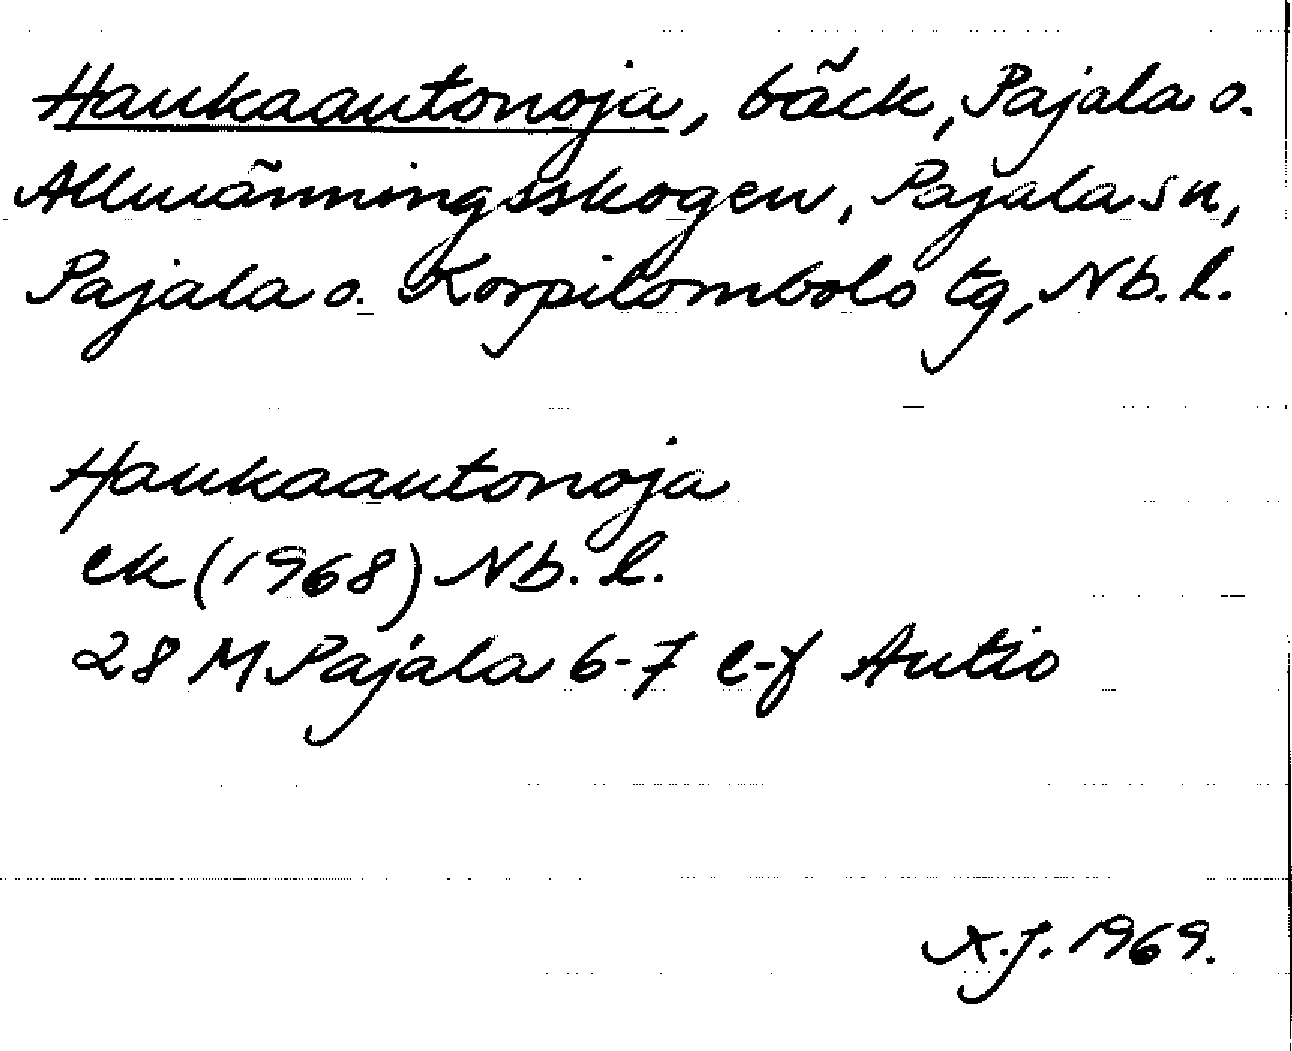 Haukaautonoja, bäck, Pajala o.
Allmänningsskogen, Pajala sn,
Pajala o. Korpilombolo tg, Nb. l.
Haukaautonoja
ek (1968) Nb. l.
28 M Pajala 6-7 e-f Autio
X.J. 1969.